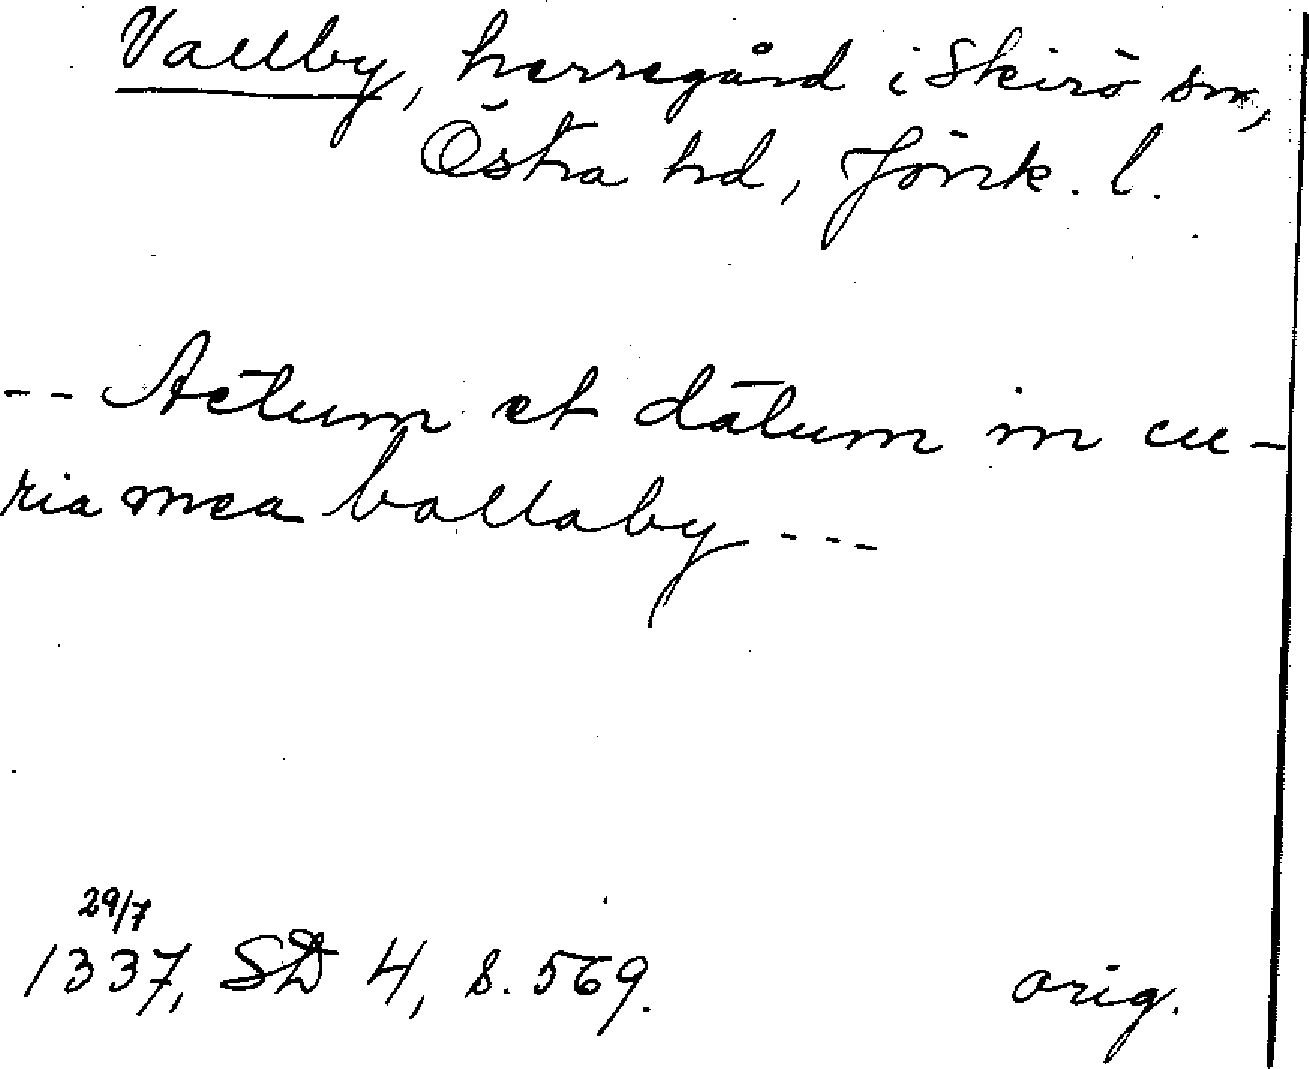 Vallby, herregård i Skirö sn,
Östra hd, Jönk. l.
-- Actum et datum in cu-
ria mea vallaby ---
29/7
1337, SD 4, s. 569.
orig.